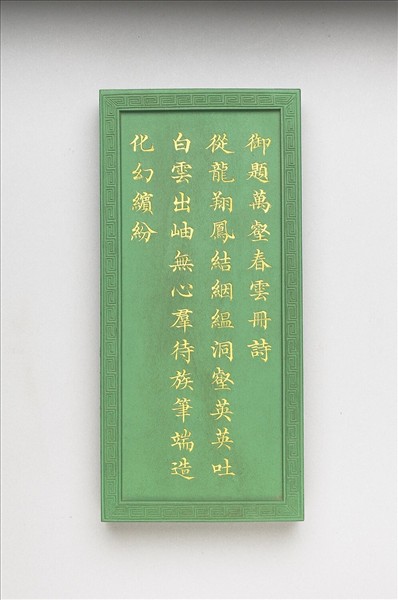 御題萬壑春雲冊詩
從龍翔鳳結絪縕洞壑英英吐
白雲出岫無心羣待族筆端造
化幻繽紛